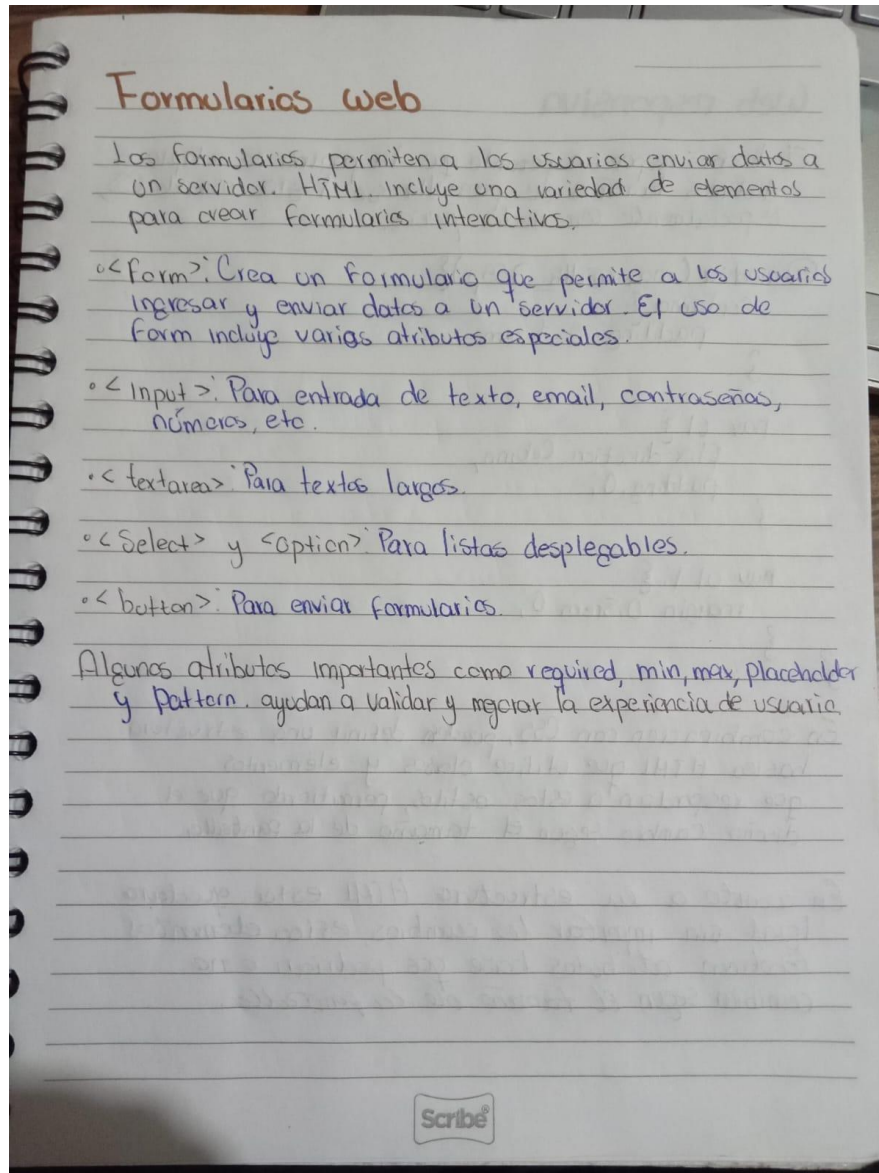 Formularios web
Los formularios permiten a los usuarios enviar datos a
un servidor. HTML incluye una variedad de elementos
para crear formularios interactivos.
•<form>: Crea un formulario que permite a los usuarios
ingresar y enviar datos a un servidor. El uso de
form incluye varios atributos especiales.
•<Input>: Para entrada de texto, email, contraseñas,
números, etc.
•<textarea>: Para textos largos.
•<Select> y <option>: Para listas desplegables.
•<button>: Para enviar formularios.
Algunos atributos importantes como required, min, max, placeholder
y Pattern. ayudan a validar y mejorar la experiencia de usuario.
Scribe®